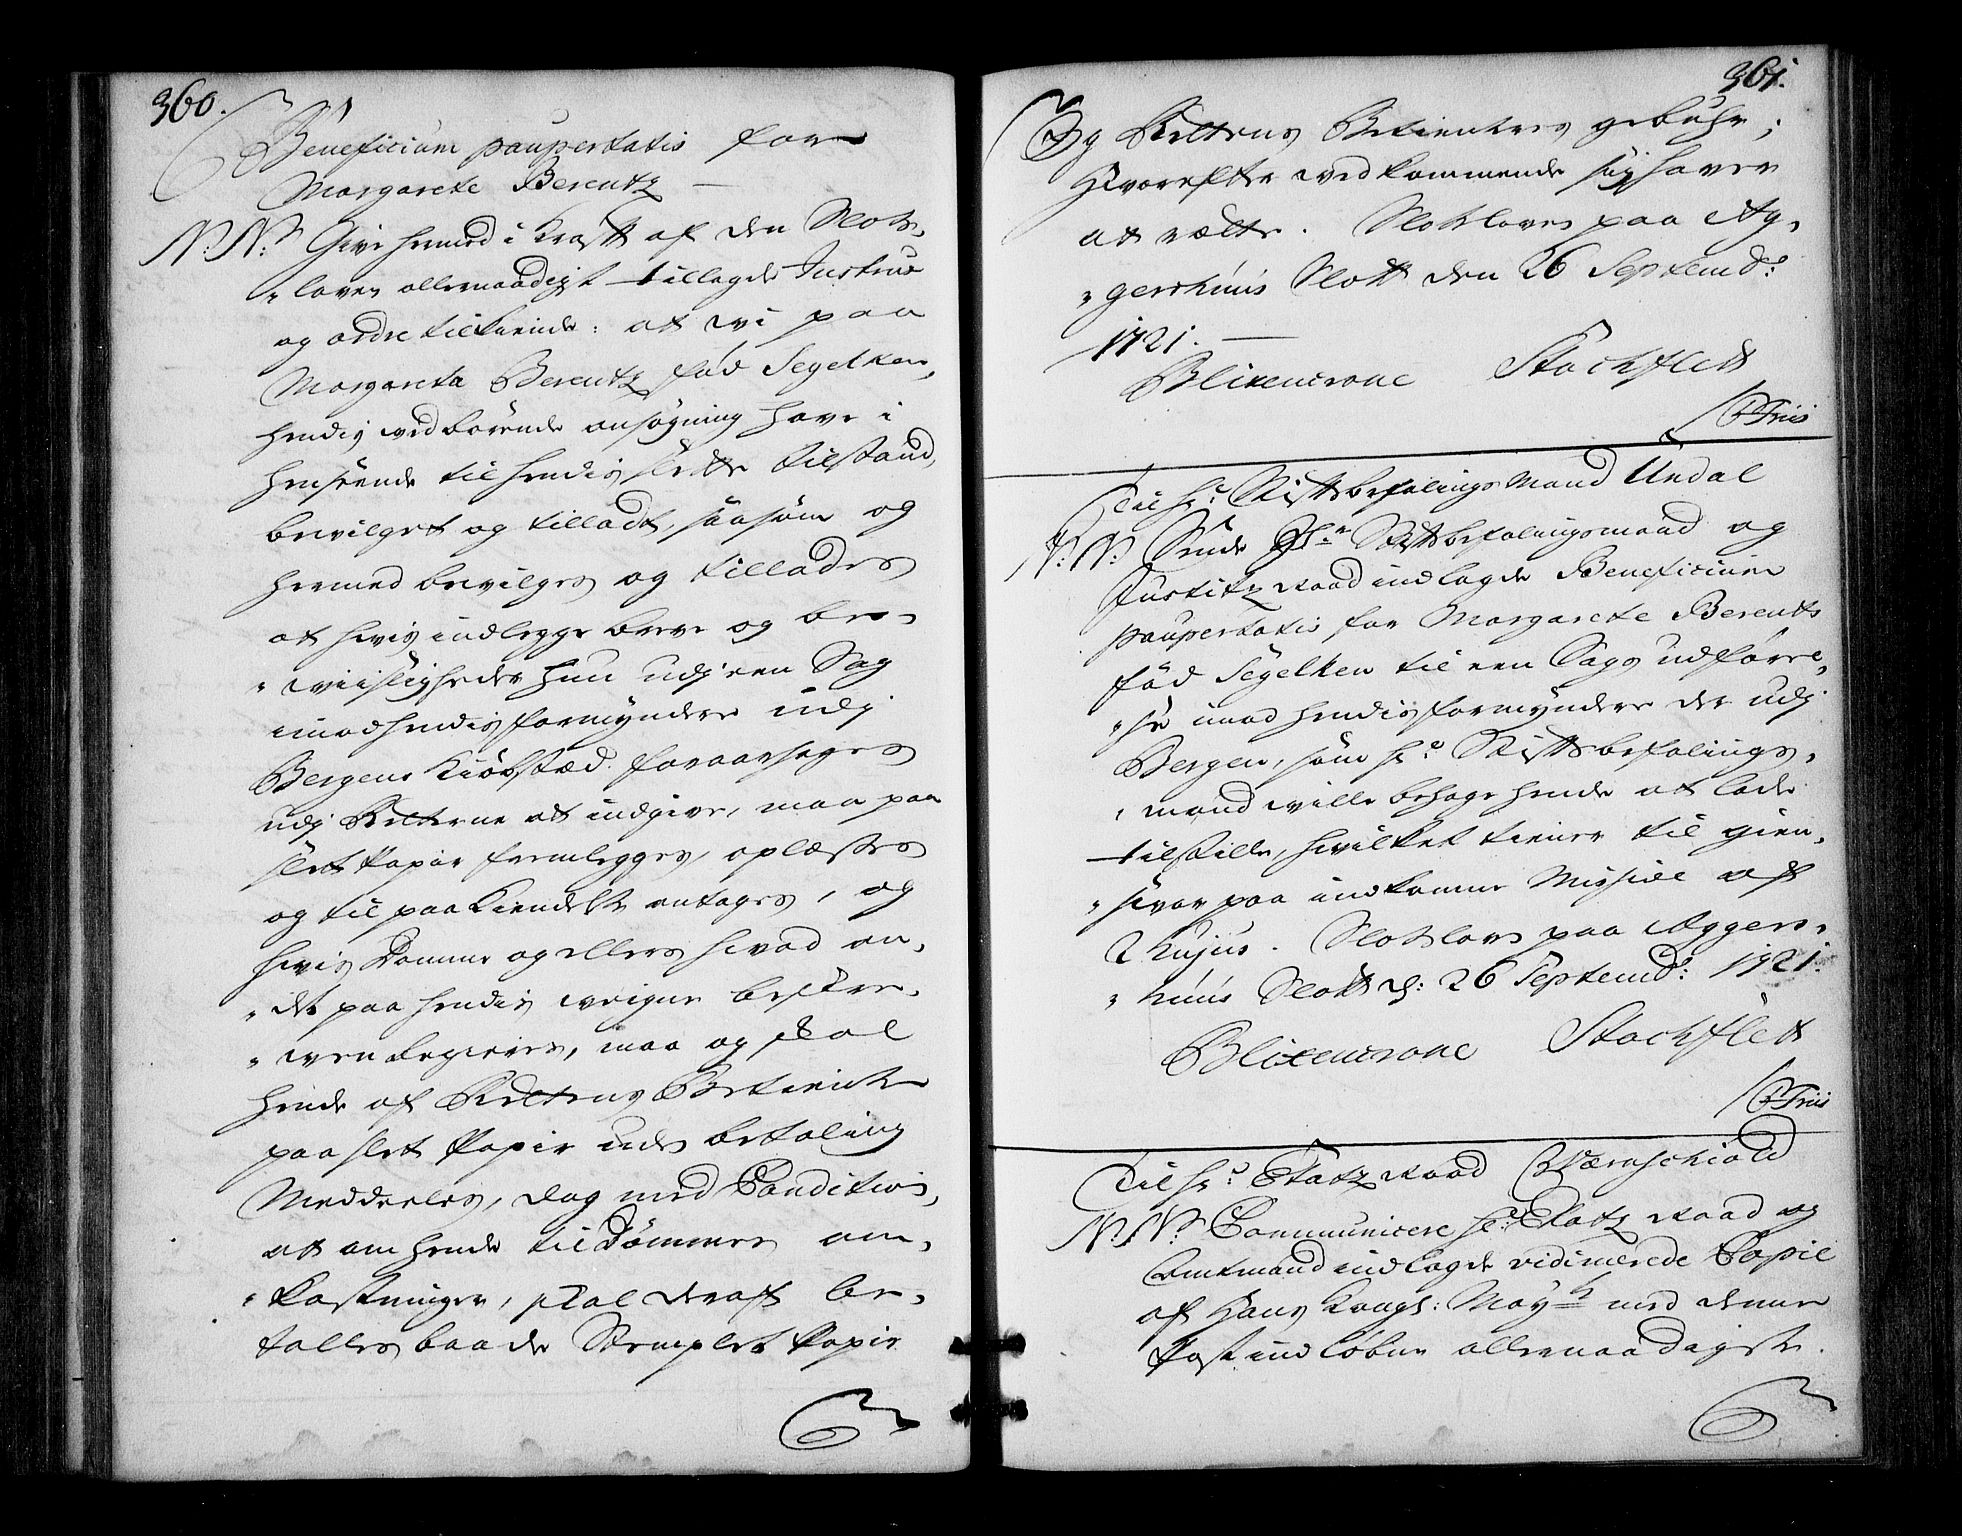 360.
Beneficium paupertatis for
Margarete Berentz
N: N: Give hermed i Kraft af den Slots
„ loven allernaadigst tillagde Instrux
og ordre tilkiende: at wi paa
Margareta Berentz fød Segelken,
hendis wedbørende ansøgning have i
henseende til hendis slette tilstand,
bevilget og tilladt, saasom og
hermed bevilges og tillades
at hvis indlegge breve og be„
„ wiisligheder hun udj een Sag
imod hendis formyndere udj
Bergens Kiøbstæd foraarsages
udj Retterne at indgive, maa paa
slet Papiir fremlegges, oplæses
og til paakiendelse antages, og
hvis Domme og ellers hvad an„
„ det paa hendis weigne beskre„
„ wen begieres, maa og skal
hende af Rettens Betiente
paa slet Papir uden betaling
Meddeeles, dog med Condition,
at om hende tildømmes om„
„ kostninger, skal deraf be„
talles baade Stemplet Papir
361.
Og Rettens Betienters gebuhr;
Hvorefter wedkommende sig haver
at rætte. Slotsloven paa Ag„
„ gershuus Slott den 26 Septemb:
1721.
Blixencrone Stockflett
/ Friis
Til Hr: Stiftsbefalingsmand Undal
N: N: Sende Hr: Stiftsbefalingsmand og
Justitz Raad indlagde Beneficium
paupertatis for Margarete Berentz
fød Segelken til een Sags udføre„
„ se imod hendis formyndere der udj
Bergen, som Hr: Stiftsbefalings„
„ mand wille behage hende at lade
tilstille, hvilket tiener til gien„
„ svar paa indkomne Missive af
2 hujus. Slotsloven paa Aggers„
„ huus Slott d: 26 Septemb: 1721.
Blixencrone Stockflett
/ Friis
Til Hr: Etatz Raad Wærnschiold
N: N: Communicere Hr: Etatz Raad og
Amtmand indlagde vidimerede Copie
af Hans Kongl: May:ts med denne
Post indløbne allernaadigste